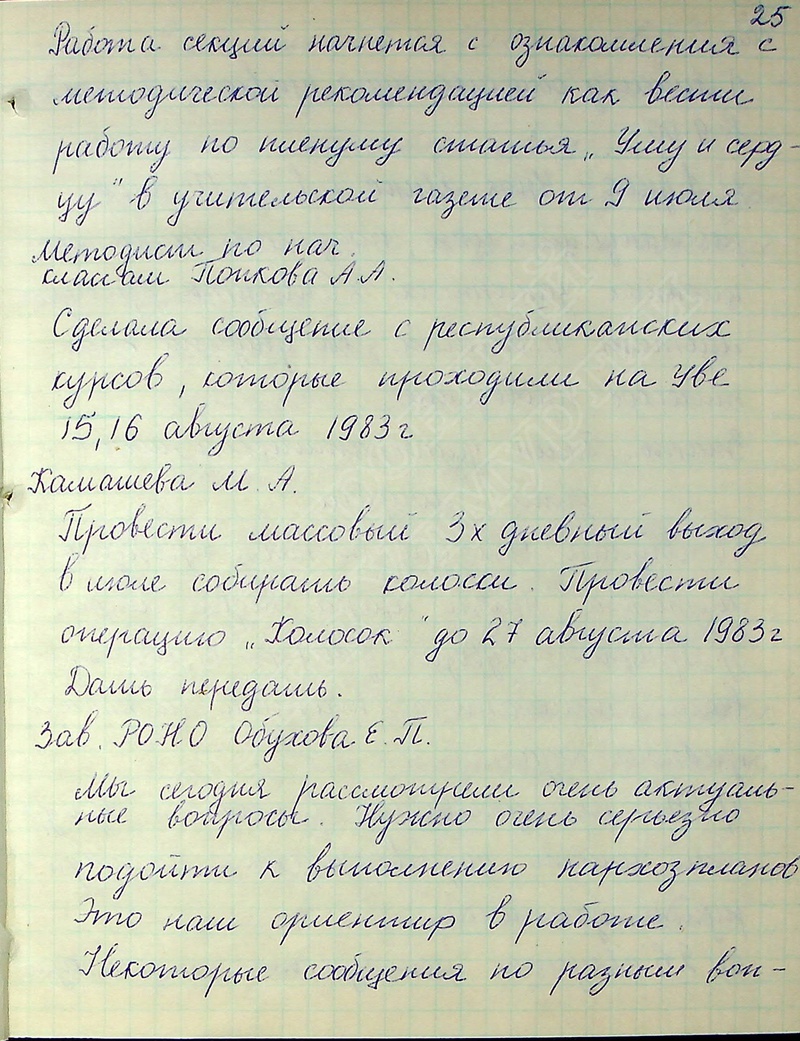 25
Работа секций начнется с ознакомления с
методической рекомендацией как вести
работу по пленуму статья „Уму и серд-
цу" в учительской газете от 9 июля
Методист по нач.
классам Попкова А.А.
Сделала сообщение с республиканских
курсов, которые проходили на Уве
15, 16 августа 1983 г
Камашева М. А.
Провести массовый 3х дневный выход
в поле собирать колоски. Провести
операцию „Колосок" до 27 августа 1983 г
Дать передать.
Зав. РОНО Обухова Е. П.
Мы сегодня рассмотрели очень актуаль-
ные вопросы. Нужно очень серьезно
подойти к выполнению нархозпланов
Это наш ориентир в работе.
Некоторые сообщения по разным воп-